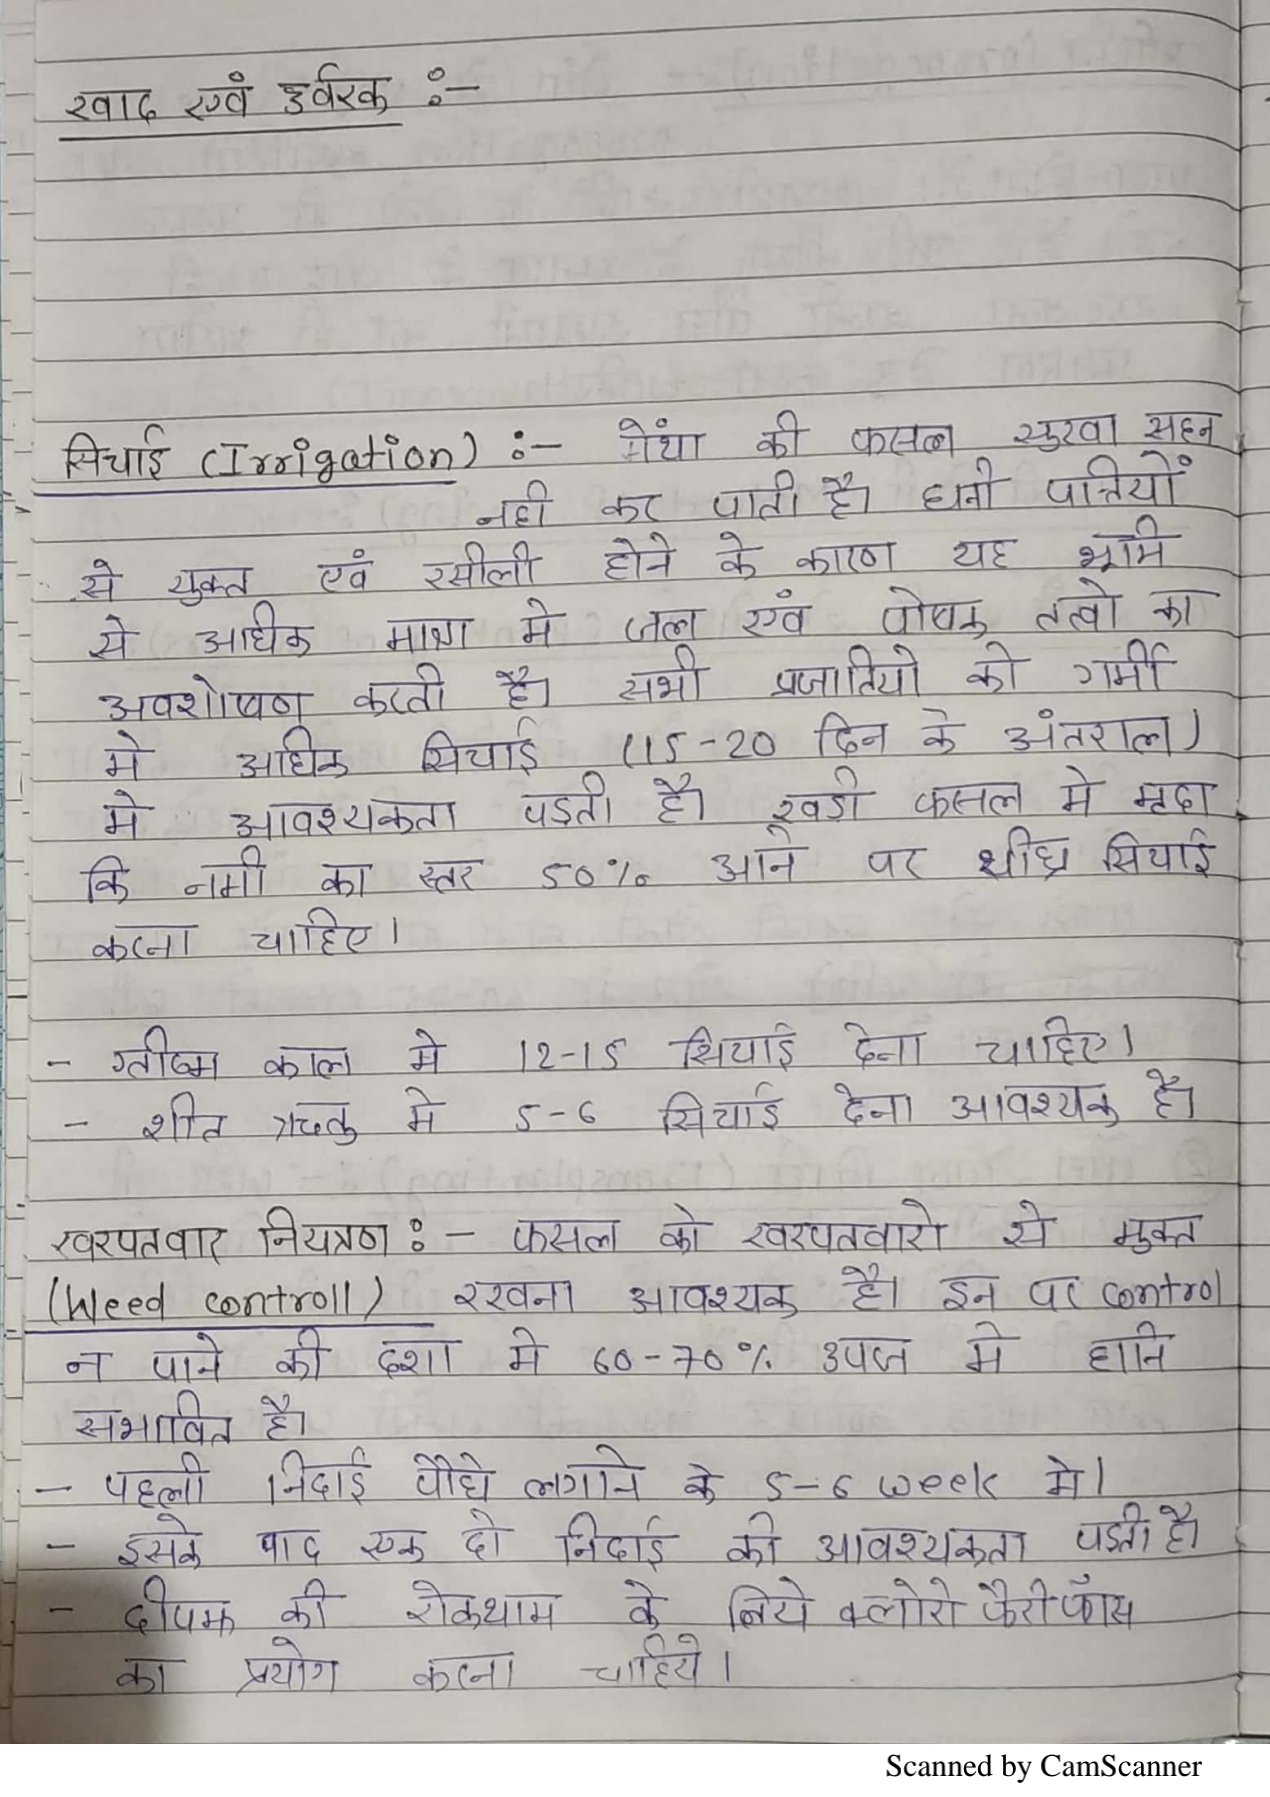 खाद एवं उर्वरक :-
सिचाई (Irrigation) :- मेंथा की फसल सुखा सहन
नही कर पाती है। घनी पत्तियों
से युक्त एवं रसीली होने के कारण यह भूमि
से अधिक मात्रा मे जल एवं पोषक तत्वो का
अवशोषण करती है। सभी प्रजातियो को गर्मी
मे अधिक सिचाई (15-20 दिन के अंतराल)
मे आवश्यकता पडती है। खडी फसल मे मृदा
कि नमी का स्तर 50% आने पर शीघ्र सिचाई
करना चाहिए।
- ग्रीष्म काल मे 12-15 सिचाई देना चाहिए।
- शीत ऋतु मे 5-6 सिचाई देना आवश्यक है।
खरपतवार नियत्रण :- फसल को खरपतवारो से मुक्त
(Weed controll) रखना आवश्यक है। इन पर control
न पाने की दशा मे 60-70% उपज मे हानि
सभावित है।
- पहली निदाई पौधे लगाने के 5-6 week मे।
- इसके बाद एक दो निदाई की आवश्यकता पडती है।
- दीपमक की रोकथाम के लिये क्लोरो फैरी फॉस
का प्रयोग करना चाहिये।
Scanned by CamScanner